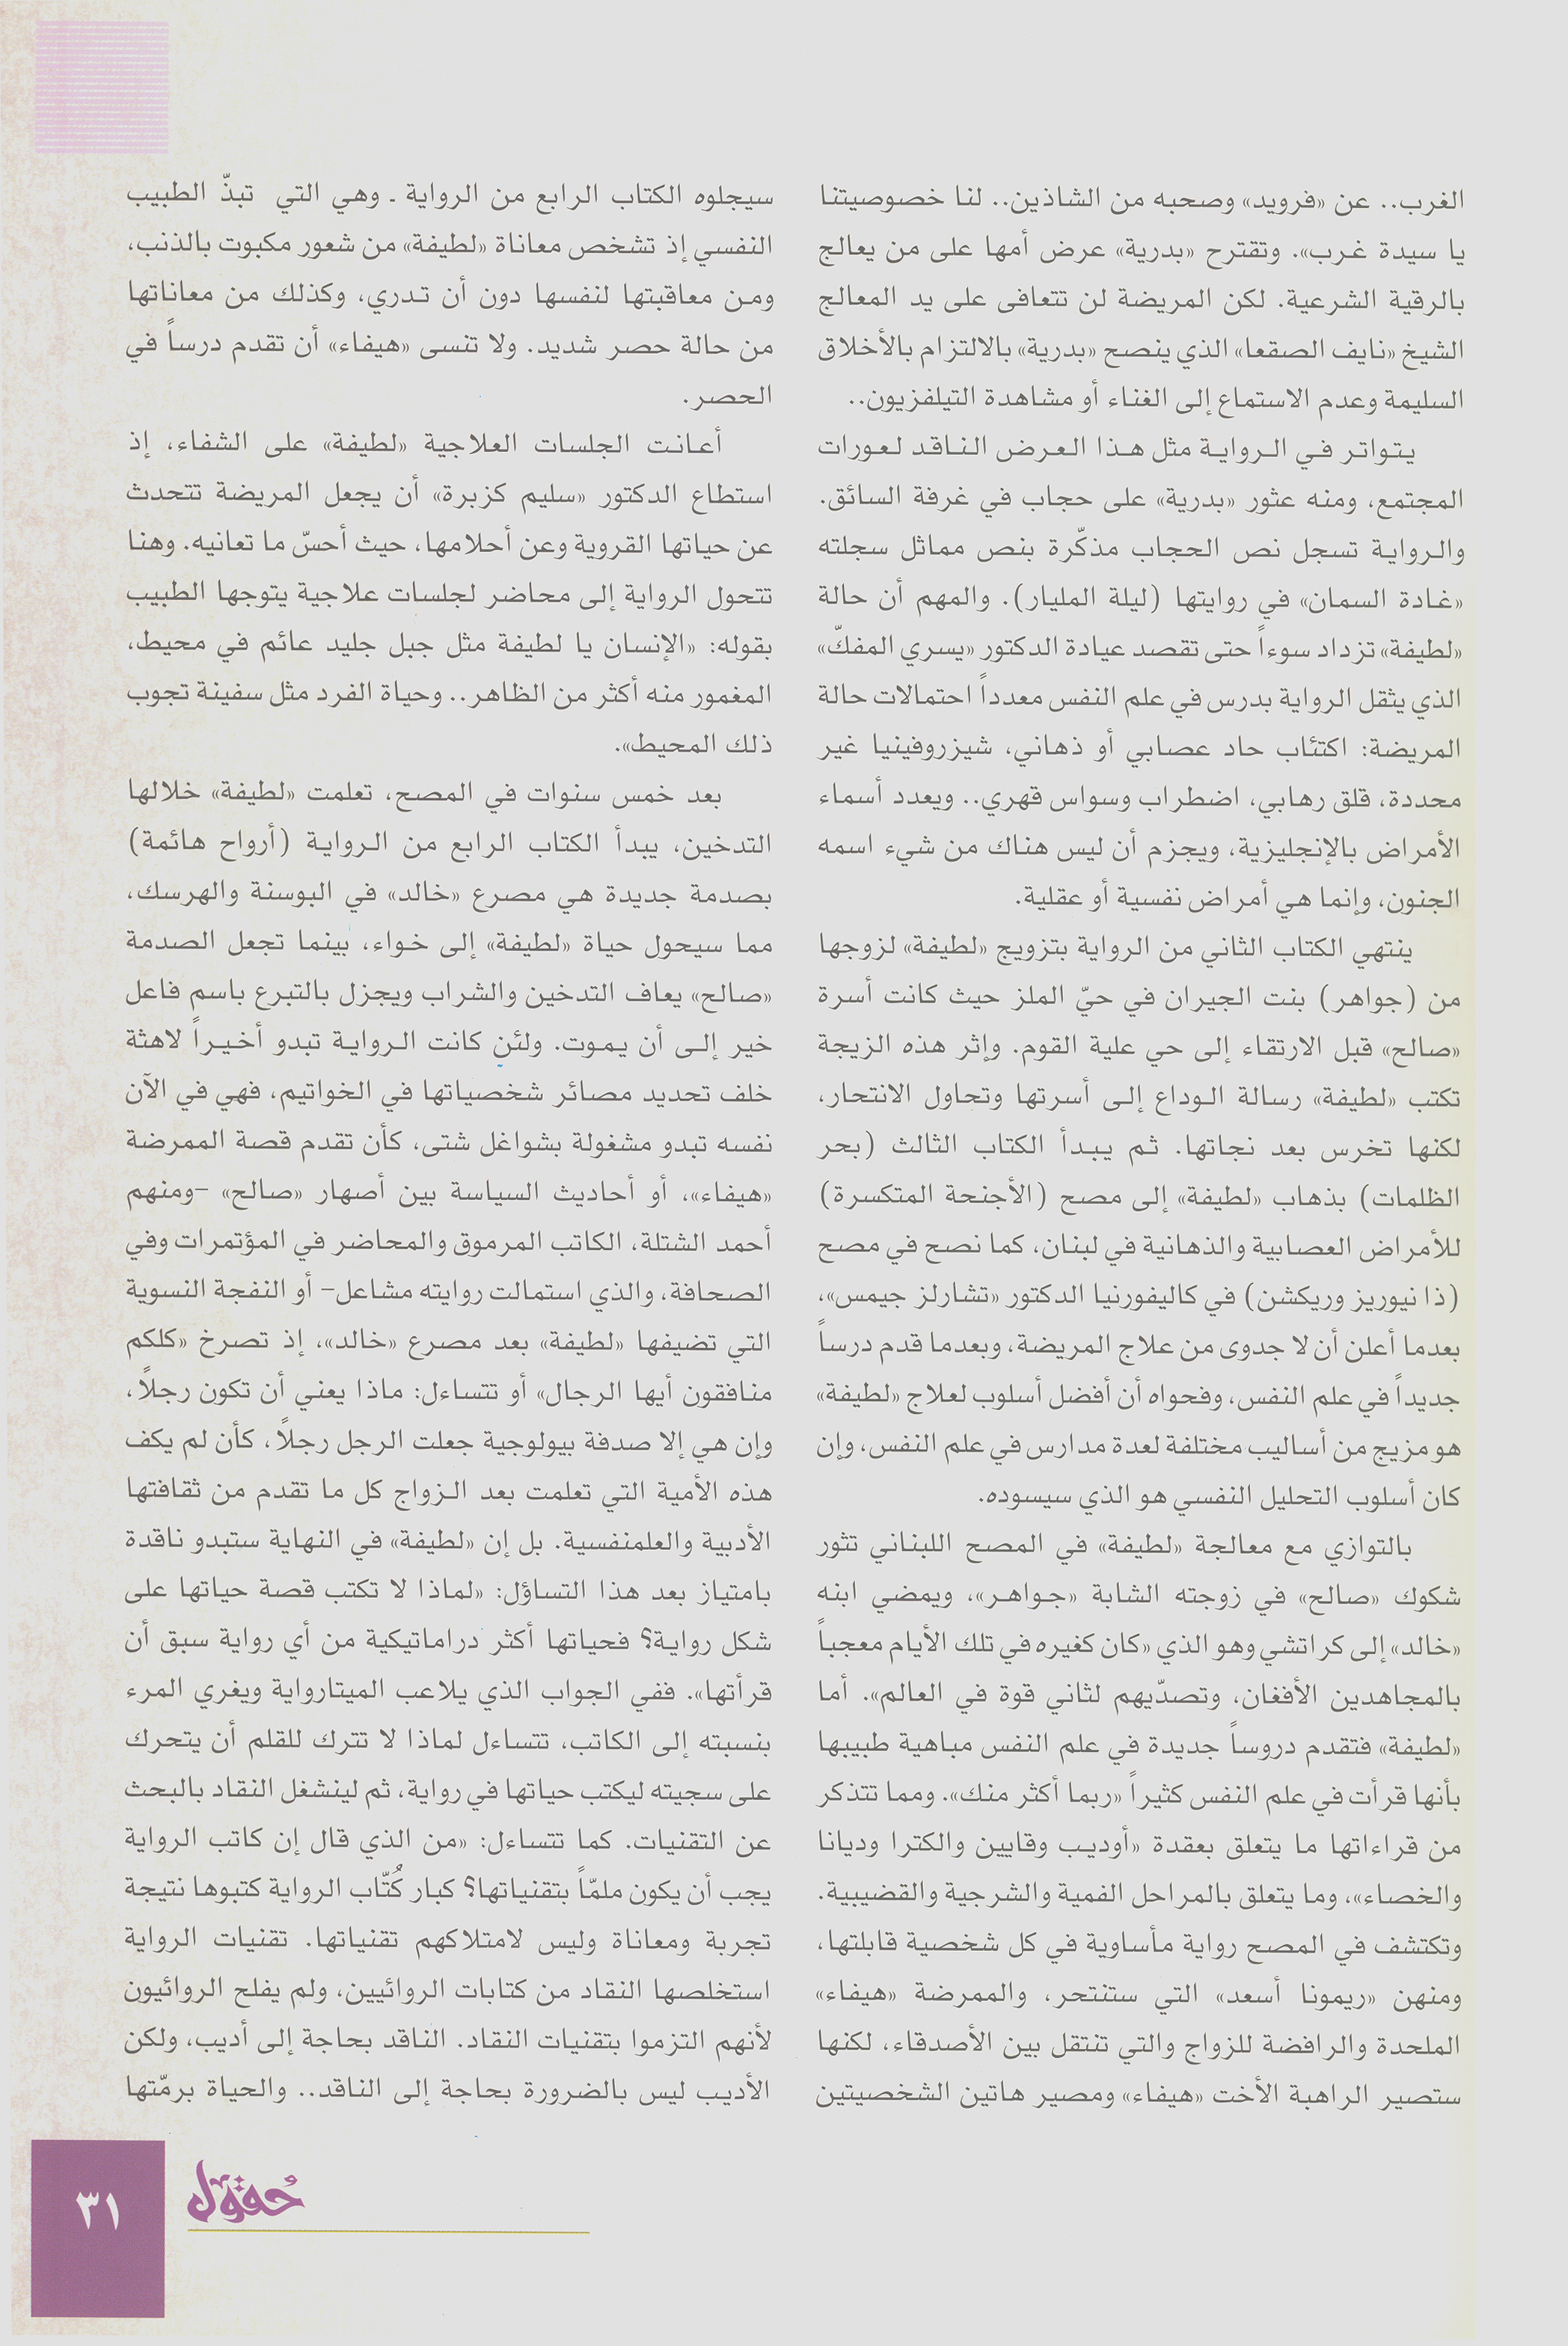 الغرب.. عن «فرويد» وصحبه من الشاذين.. لنا خصوصيتنا
يا سيدة غرب». وتقترح «بدرية» عرض أمها على من يعالج
بالرقية الشرعية. لكن المريضة لن تتعافى على يد المعالج
الشيخ «نايف الصقعا» الذي ينصح «بدرية» بالالتزام بالأخلاق
السليمة وعدم الاستماع إلى الغناء أو مشاهدة التيلفزيون..
يتواتر في الرواية مثل هذا العرض الناقد لعورات
المجتمع، ومنه عثور «بدرية» على حجاب في غرفة السائق.
والرواية تسجل نص الحجاب مذكّرة بنص مماثل سجلته
«غادة السمان» في روايتها (ليلة المليار). والمهم أن حالة
«لطيفة» تزداد سوءاً حتى تقصد عيادة الدكتور «يسري المفكّ»
الذي يثقل الرواية بدرس في علم النفس معدداً احتمالات حالة
المريضة: اكتئاب حاد عصابي أو ذهاني، شيزروفينيا غير
محددة، قلق رهابي، اضطراب وسواس قهري.. ويعدد أسماء
الأمراض بالإنجليزية، ويجزم أن ليس هناك من شيء اسمه
الجنون، وإنما هي أمراض نفسية أو عقلية.
ينتهي الكتاب الثاني من الرواية بتزويج «لطيفة» لزوجها
من (جواهر) بنت الجيران في حيّ الملز حيث كانت أسرة
«صالح» قبل الارتقاء إلى حي علية القوم. وإثر هذه الزيجة
تكتب «لطيفة» رسالة الوداع إلى أسرتها وتحاول الانتحار،
لكنها تخرس بعد نجاتها. ثم يبدأ الكتاب الثالث (بحر
الظلمات) بذهاب «لطيفة» إلى مصح (الأجنحة المتكسرة)
للأمراض العصابية والذهانية في لبنان، كما نصح في مصح
(ذا نيوريز وريكشن) في كاليفورنيا الدكتور «تشارلز جيمس»،
بعدما أعلن أن لا جدوى من علاج المريضة، وبعدما قدم درساً
جديداً في علم النفس، وفحواه أن أفضل أسلوب لعلاج «لطيفة»
هو مزيج من أساليب مختلفة لعدة مدارس في علم النفس، وإن
كان أسلوب التحليل النفسي هو الذي سيسوده.
بالتوازي مع معالجة «لطيفة» في المصح اللبناني تثور
شكوك «صالح» في زوجته الشابة «جواهر»، ويمضي ابنه
«خالد» إلى كراتشي وهو الذي «كان كغيره في تلك الأيام معجباً
بالمجاهدين الأفغان، وتصدّيهم لثاني قوة في العالم». أما
«لطيفة» فتقدم دروساً جديدة في علم النفس مباهية طبيبها
بأنها قرأت في علم النفس كثيراً «ربما أكثر منك». ومما تتذكر
من قراءاتها ما يتعلق بعقدة «أوديب وقايين والكترا وديانا
والخصاء»، وما يتعلق بالمراحل الفمية والشرجية والقضيبية.
وتكتشف في المصح رواية مأساوية في كل شخصية قابلتها،
ومنهن «ريمونا أسعد» التي ستنتحر، والممرضة «هيفاء»
الملحدة والرافضة للزواج والتي تنتقل بين الأصدقاء، لكنها
ستصير الراهبة الأخت «هيفاء» ومصير هاتين الشخصيتين
سيجلوه الكتاب الرابع من الرواية ـ وهي التي تبذّ الطبيب
النفسي إذ تشخص معاناة «لطيفة» من شعور مكبوت بالذنب،
ومن معاقبتها لنفسها دون أن تدري، وكذلك من معاناتها
من حالة حصر شديد. ولا تنسى «هيفاء» أن تقدم درساً في
الحصر.
أعانت الجلسات العلاجية «لطيفة» على الشفاء، إذ
استطاع الدكتور «سليم كزبرة» أن يجعل المريضة تتحدث
عن حياتها القروية وعن أحلامها، حيث أحسّ ما تعانيه. وهنا
تتحول الرواية إلى محاضر لجلسات علاجية يتوجها الطبيب
بقوله: «الإنسان يا لطيفة مثل جبل جليد عائم في محيط،
المغمور منه أكثر من الظاهر.. وحياة الفرد مثل سفينة تجوب
ذلك المحيط».
بعد خمس سنوات في المصح، تعلمت «لطيفة» خلالها
التدخين، يبدأ الكتاب الرابع من الرواية (أرواح هائمة)
بصدمة جديدة هي مصرع «خالد» في البوسنة والهرسك،
مما سيحول حياة «لطيفة» إلى خواء، بينما تجعل الصدمة
«صالح» يعاف التدخين والشراب ويجزل بالتبرع باسم فاعل
خير إلى أن يموت. ولئن كانت الرواية تبدو أخيراً لاهثة
خلف تحديد مصائر شخصياتها في الخواتيم، فهي في الآن
نفسه تبدو مشغولة بشواغل شتى، كأن تقدم قصة الممرضة
«هيفاء»، أو أحاديث السياسة بين أصهار «صالح» -ومنهم
أحمد الشتلة، الكاتب المرموق والمحاضر في المؤتمرات وفي
الصحافة، والذي استمالت روايته مشاعل- أو النفجة النسوية
التي تضيفها «لطيفة» بعد مصرع «خالد»، إذ تصرخ «كلكم
منافقون أيها الرجال» أو تتساءل: ماذا يعني أن تكون رجلاً،
وإن هي إلا صدفة بيولوجية جعلت الرجل رجلاً، كأن لم يكف
هذه الأمية التي تعلمت بعد الزواج كل ما تقدم من ثقافتها
الأدبية والعلمنفسية. بل إن «لطيفة» في النهاية ستبدو ناقدة
بامتياز بعد هذا التساؤل: «لماذا لا تكتب قصة حياتها على
شكل رواية؟ فحياتها أكثر دراماتيكية من أي رواية سبق أن
قرأتها». ففي الجواب الذي يلاعب الميتارواية ويغري المرء
بنسبته إلى الكاتب، تتساءل لماذا لا تترك للقلم أن يتحرك
على سجيته ليكتب حياتها في رواية، ثم لينشغل النقاد بالبحث
عن التقنيات. كما تتساءل: «من الذي قال إن كاتب الرواية
يجب أن يكون ملمّاً بتقنياتها؟ كبار كُتّاب الرواية كتبوها نتيجة
تجربة ومعاناة وليس لامتلاكهم تقنياتها. تقنيات الرواية
استخلصها النقاد من كتابات الروائيين، ولم يفلح الروائيون
لأنهم التزموا بتقنيات النقاد. الناقد بحاجة إلى أديب، ولكن
الأديب ليس بالضرورة بحاجة إلى الناقد.. والحياة برمّتها
حُقول
٣١